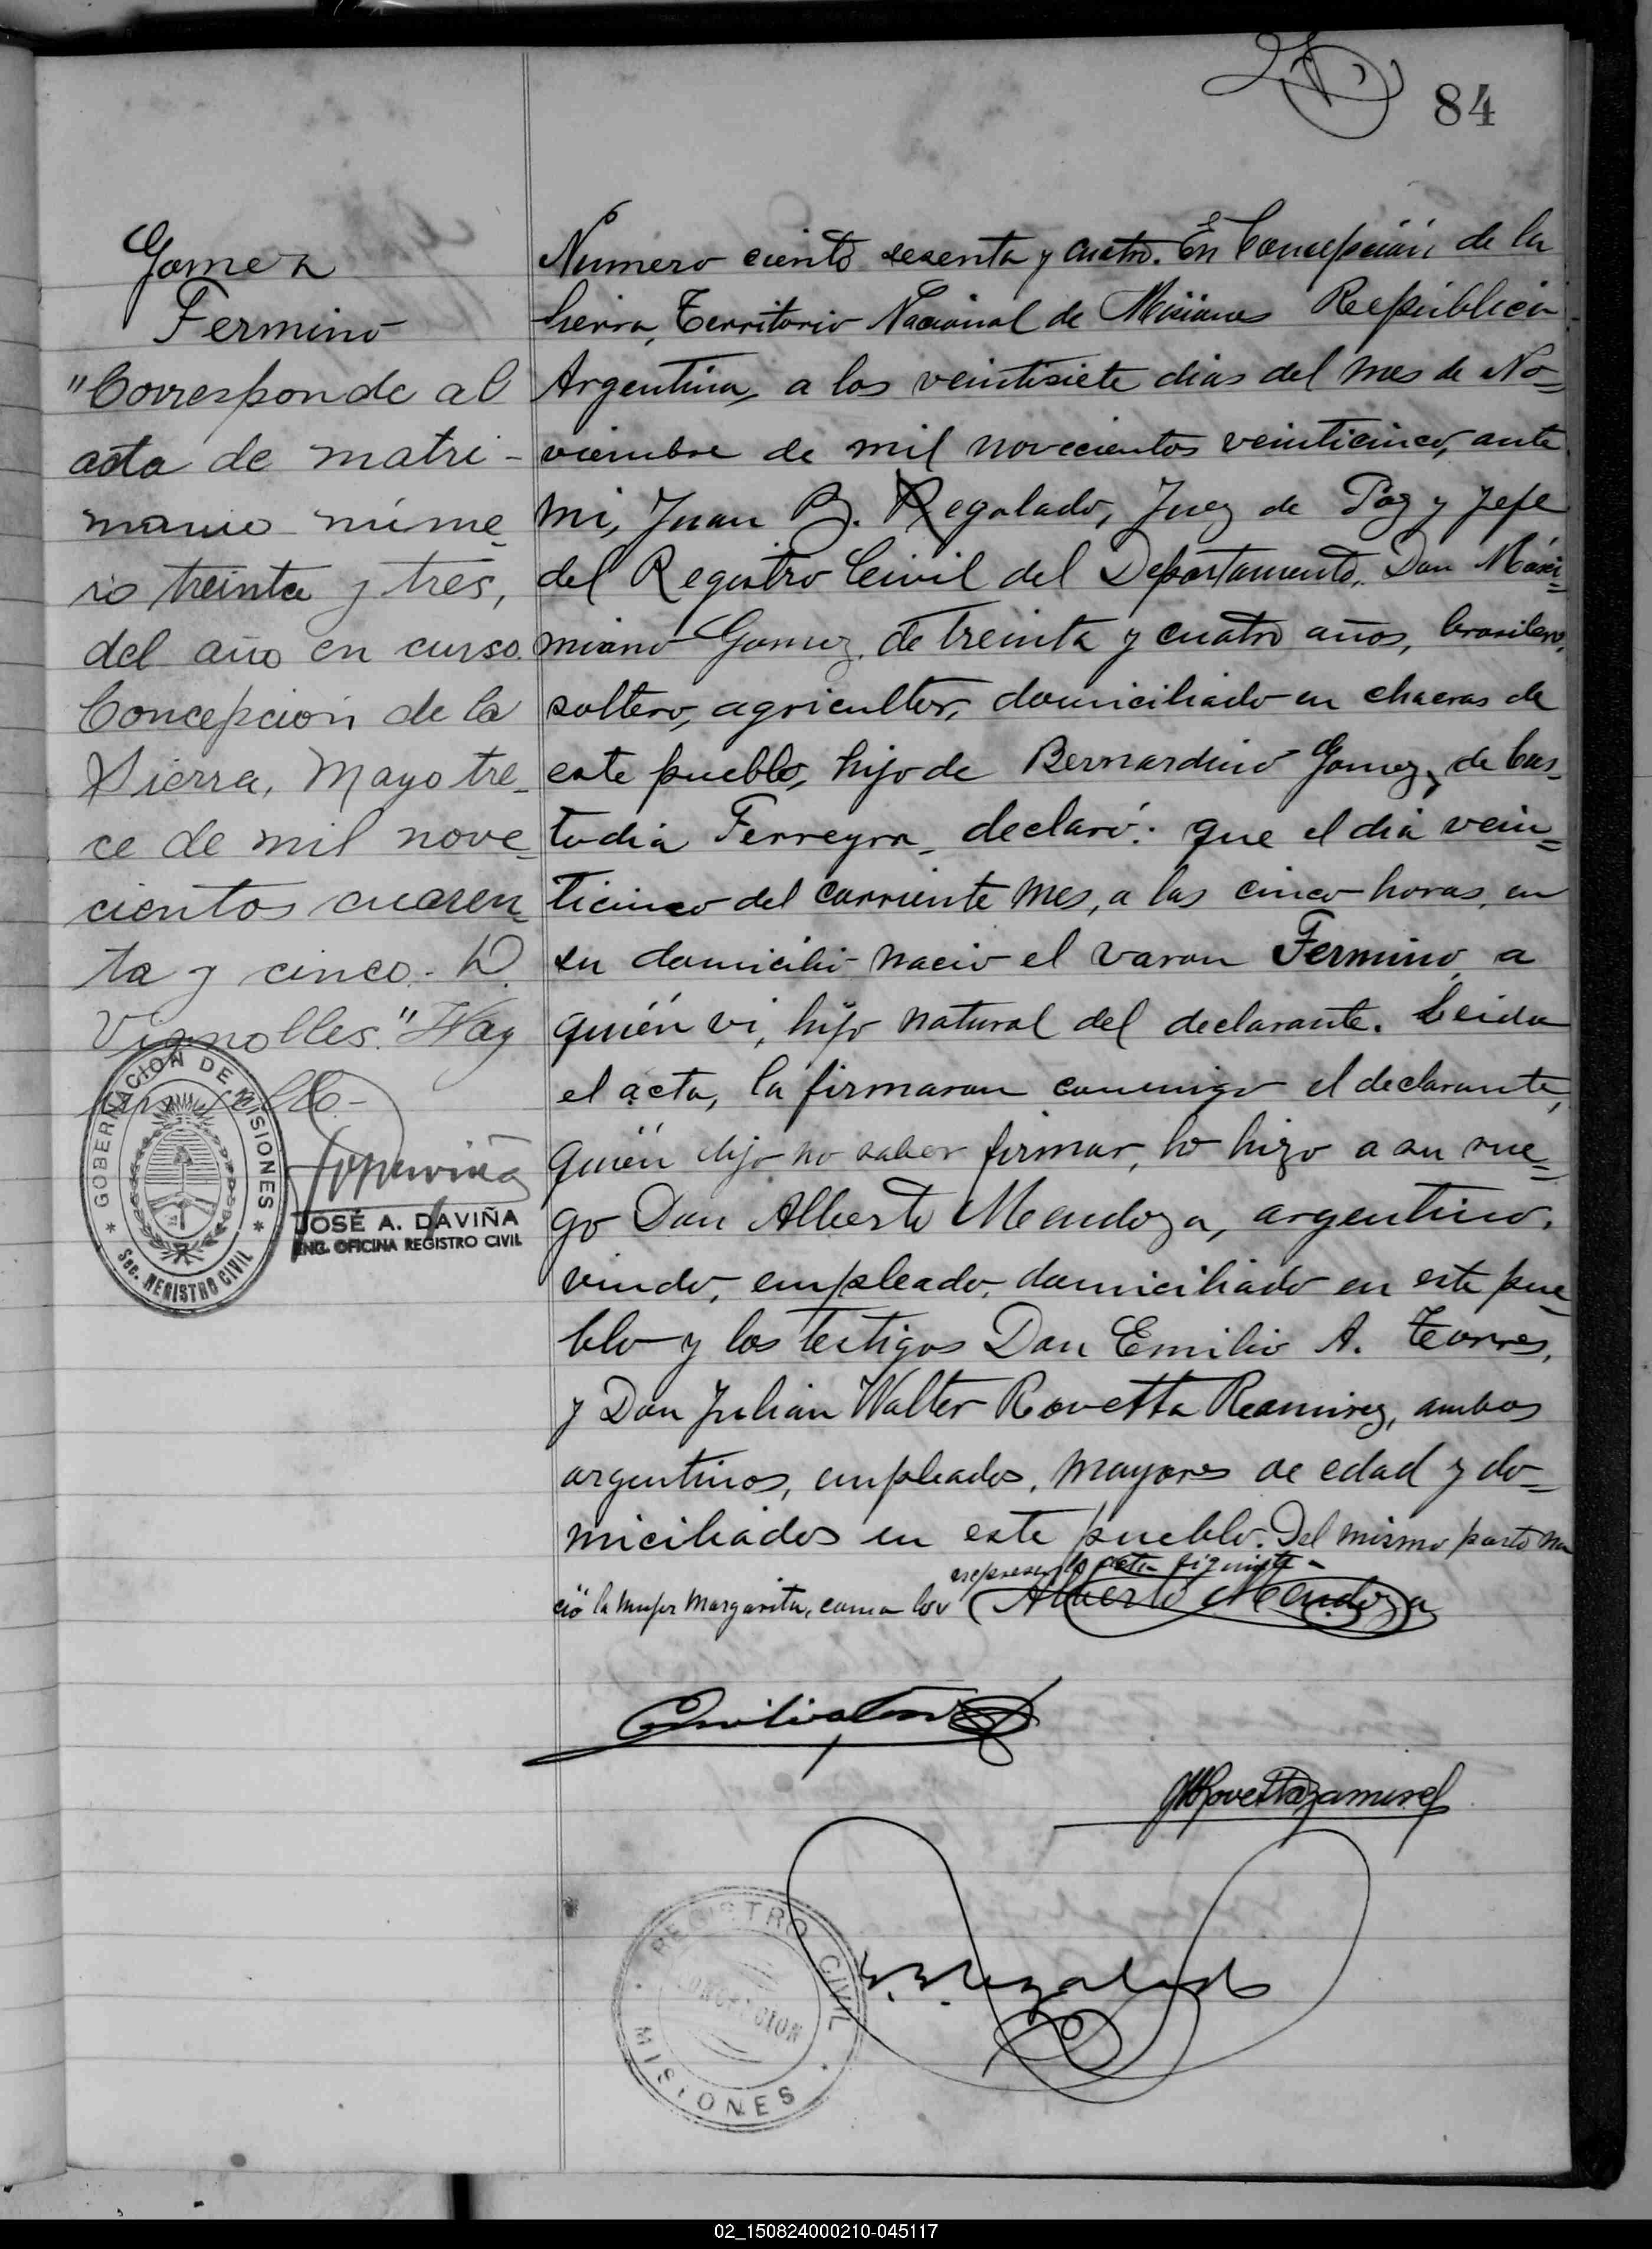 84
Gomez
Fermino
"Corresponde al
acta de matri-
monio núme-
ro treinta y tres,
del año en curso.
Concepción de la
Sierra, Mayo tre-
ce de mil nove-
cientos cuaren-
ta y cinco.- D.
Vignolles." Hay
un sello.-
GOBERNACION DE MISIONES
Sec. REGISTRO CIVIL
JOSÉ A. DAVIÑA
ENC. OFICINA REGISTRO CIVIL
Numero ciento sesenta y cuatro. En Concepción de la
Sierra, Territorio Nacional de Misiones Republica
Argentina, a los veintisiete dias del mes de No=
viembre de mil novecientos veinticinco, ante
mi, Juan B. Regalado, Juez de Paz y Jefe
del Registro Civil del Departamento, Don Maxi=
miano Gomez, de treinta y cuatro años, brasilero,
soltero, agricultor, domiciliado en chacras de
este pueblo, hijo de Bernardino Gomez y de Cus-
todia Ferreyra, declaró: que el dia vein=
ticinco del corriente mes, a las cinco horas, en
su domicilio nacio el varon Fermino, a
quién vi, hijo natural del declarante. Leida
el acta, la firmaron conmigo el declarante,
quién dijo no saber firmar, lo hizo a su rue=
go Don Alberto Mendoza, argentino,
viudo, empleado, domiciliado en este pue=
blo y los testigos Don Emilio A. Torres,
y Don Julian Walter Rovetta Ramirez, ambos
argentinos, empleados, mayores de edad y do=
miciliados en este pueblo. Del mismo parto na
ció la mujer Margarita, como lo
expresa el acta siguiente-
Alberto Mendoza
Emilio A Torres
JWRovettaRamirez
J. B. Regalado
REGISTRO CIVIL
CONCEPCION
MISIONES
02_150824000210-045117